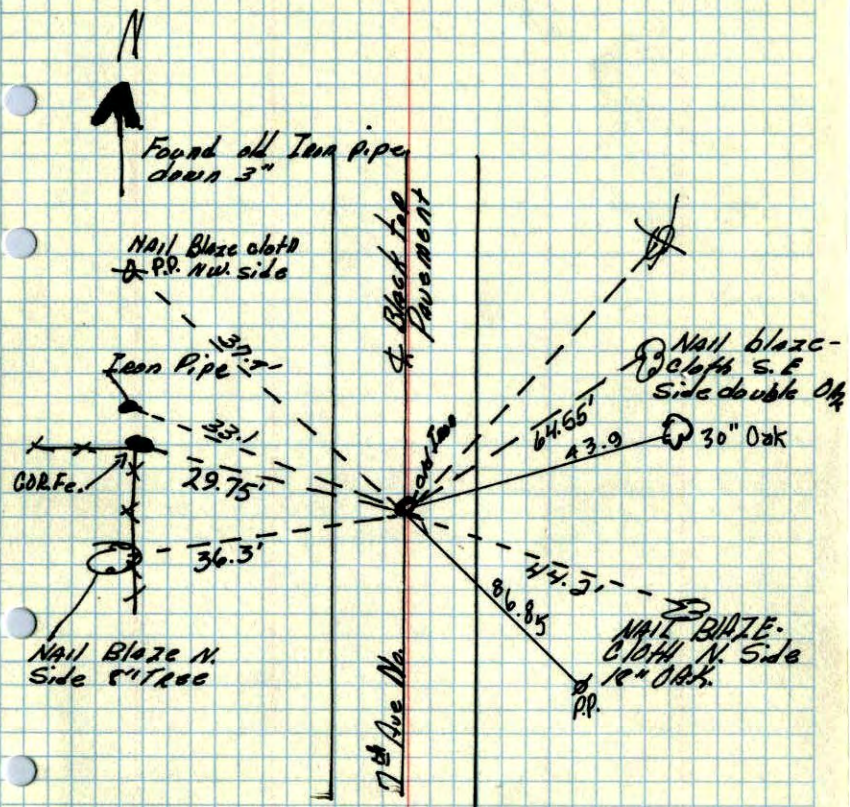 N
Found old Iron pipe
down 3"
NAIl Blaze cloth
P.P. NW. side
℄ Black top
Pavement
Iron Pipe
33.1
COR.Fe.
29.75'
36.3'
NAIl Blaze N.
Side 8" TRee
NAIl blaze-
cloth S.E
Side double
64.65'
43.9
30" Oak
44.2'
86.85
NAIL BlAZE-
CloTH N. Side
18" OAK
P.P.
7th Ave No.